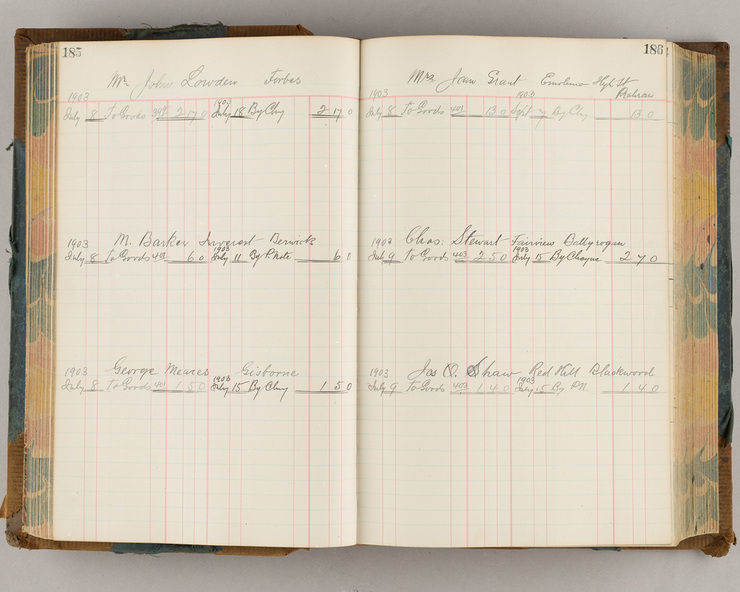 185
Mr John Lowden Forbes
1903 1903
July 8 To Goods 2 17 0 July 18 By Chq 2 17 0
1903 M. Barker Invercst Berwick
1903
July 8 To Goods 401 6 0 July 11 By P. Note 6 0
1903 George Meares Gisborne
1903
July 8 To Goods 401 1 5 0 July 15 By Chq 1 5 0
186
Mrs Joan Grant High St
Prahran
1903 1903
July 8 To Goods 401 13 0 Sept 7 By Chq 13 0
1903 Chas. Stewart Fairview Ballyrogan
1903
July 9 To Goods 403 2 5 0 July 15 By Cheque 2 7 0
1903 Jas O. Shaw Red Hill Blackwood
1903
July 9 To Goods 403 1 4 0 July 15 By P.N. 1 4 0